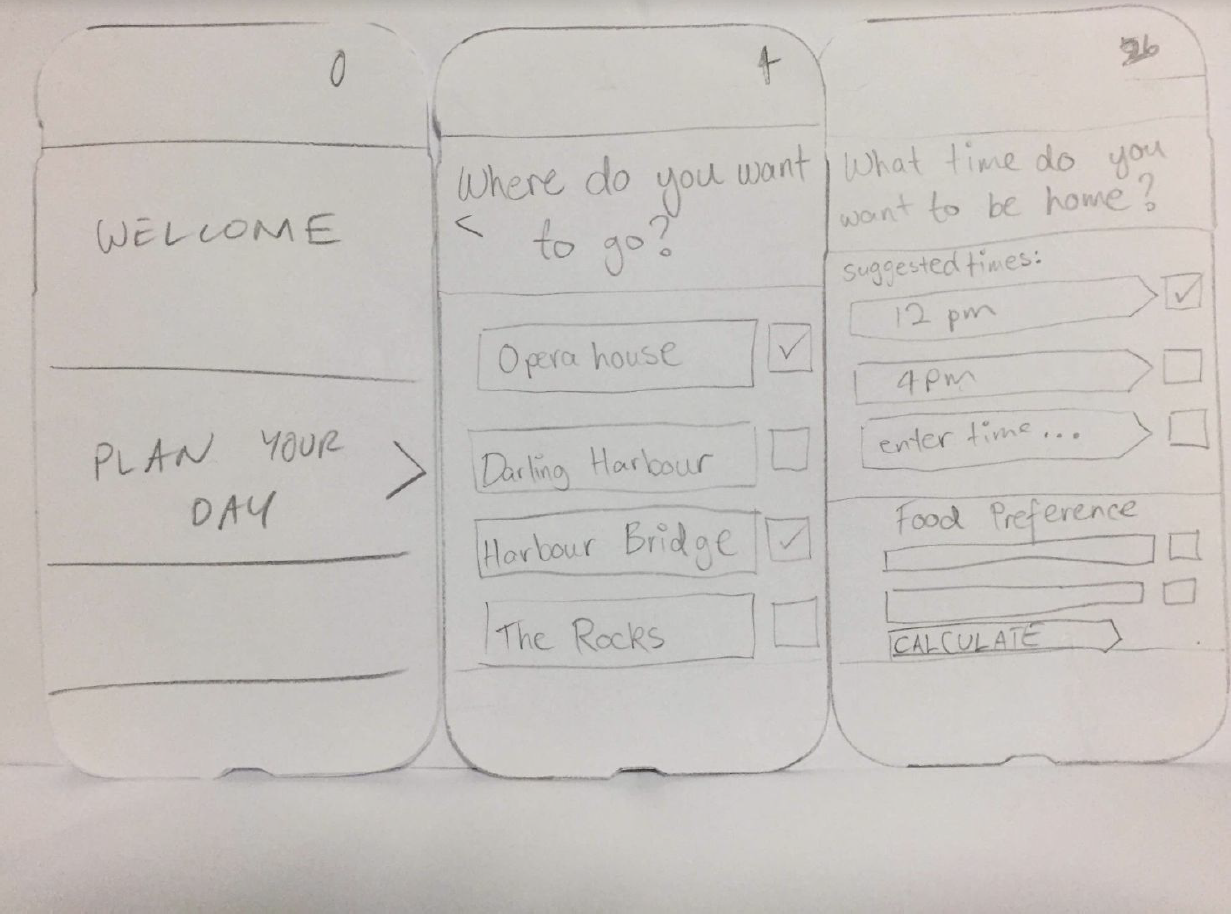 0
WELCOME
PLAN YOUR
DAY
>
4
Where do you want
< to go?
Opera house
Darling Harbour
Harbour Bridge
The Rocks
What time do you
want to be home?
suggested times:
12 pm
4pm
enter time...
Food Preference
CALCULATE